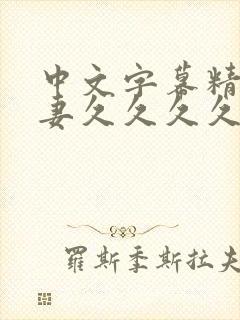 中文字幕精
妻久久久久
羅斯季斯拉夫